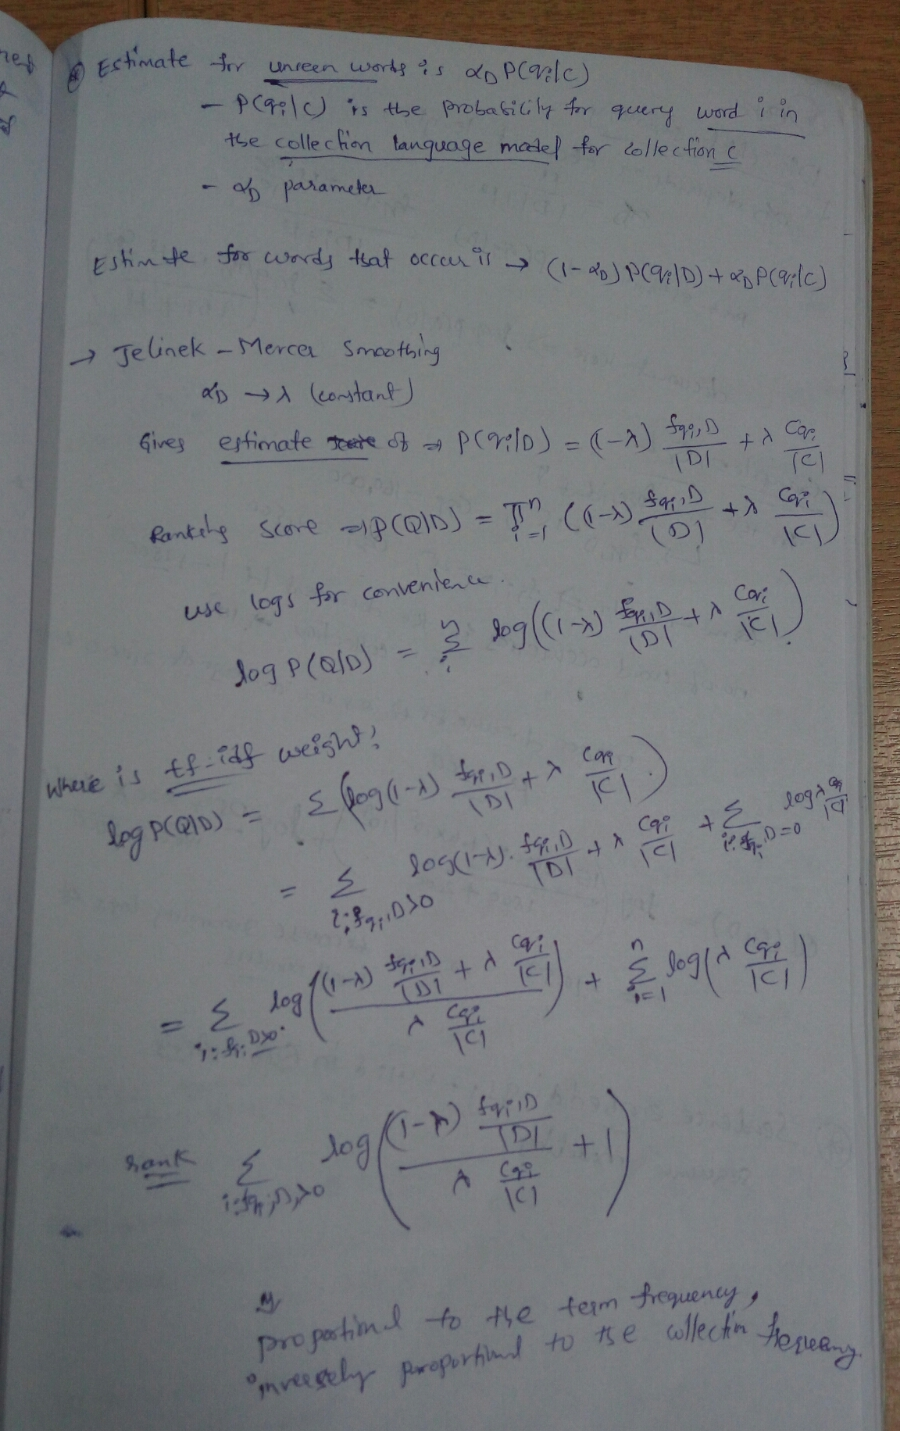 Estimate for unseen words is α_D P(q_i|C)
- P(q_i|C) is the probability for query word i in
the collection language model for collection C
- α_D parameter
Estimate for words that occur is → (1-α_D)P(q_i|D)+α_D P(q_i|C)
→ Jelinek - Mercer Smoothing
α_D → λ (constant)
Gives estimate of ⇒ P(q_i|D) = (1-λ) f_{q_i,D}/|D| + λ c_{q_i}/|C|
Ranking Score ⇒ P(Q|D) = ∏_{i=1}^{n} ((1-λ) f_{q_i,D}/|D| + λ c_{q_i}/|C|)
use logs for convenience.
log P(Q|D) = Σ_{i}^{n} log((1-λ) f_{q_i,D}/|D| + λ c_{q_i}/|C|).
Where is tf-idf weight?
log P(Q|D) = Σ(log(1-λ) f_{q_i,D}/|D| + λ c_{q_i}/|C|.)
= Σ_{i:f_{q_i,D}>0} log(1-λ). f_{q_i,D}/|D| + λ c_{q_i}/|C| + Σ_{i:f_{q_i,D}=0} log λ c_{q_i}/|C|
= Σ_{i:f_{q_i,D}>0} log(((1-λ) f_{q_i,D}/|D| + λ c_{q_i}/|C|)/(λ c_{q_i}/|C|)) + Σ_{i=1}^{n} log(λ c_{q_i}/|C|)
rank Σ_{i:f_{q_i,D}>0} log(((1-λ) f_{q_i,D}/|D|)/(λ c_{q_i}/|C|) + 1)
proportional to the term frequency,
inversely proportional to the collection frequency.